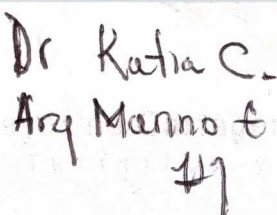 Dr Katia C.
Ary Manno t
#1